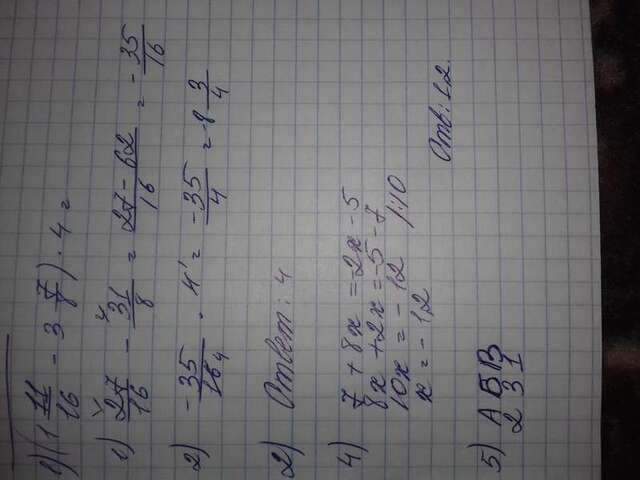 1) (1 11/16 - 3 7/8) · 4 =
1) 27/16 - 31/8 = 27-62/16 = -35/16
2) -35/16 4 · 4 1 = -35/4 = -8 3/4
2) Ответ: 4
4) 7 + 8x = -2x - 5
8x + 2x = -5 - 7
10x = -12 |:10
x = -1,2
Отв: 1,2.
5) А Б В
2 3 1